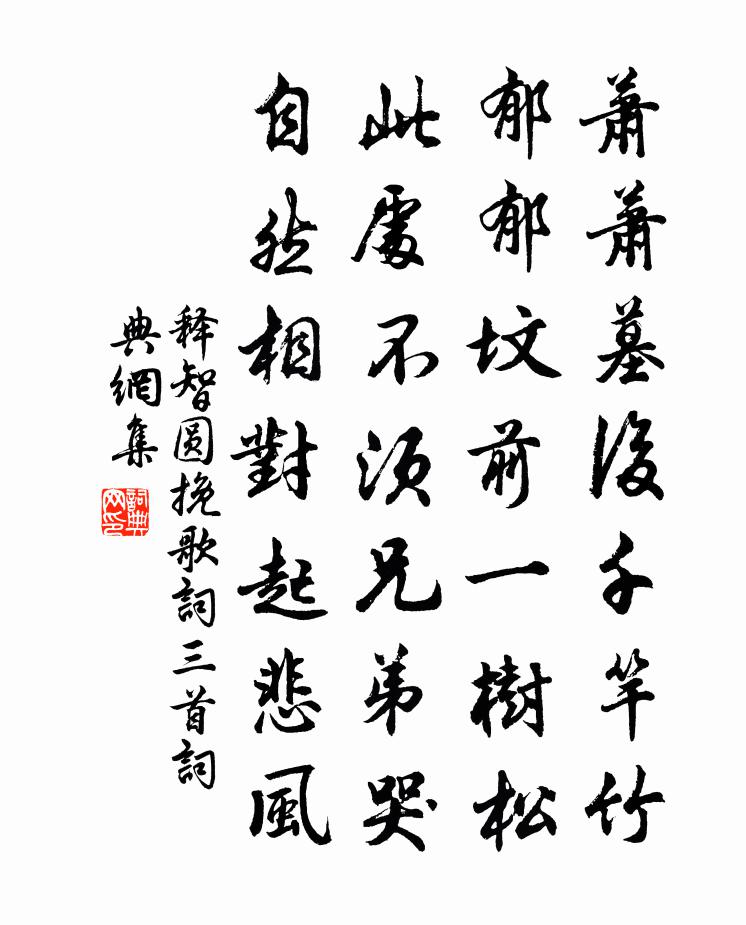 蕭蕭墓後千竿竹
郁郁坟前一樹松
此處不須兄弟哭
自然相對起悲風
释智圓挽歌詞三首詞
典網集
詞典
网印